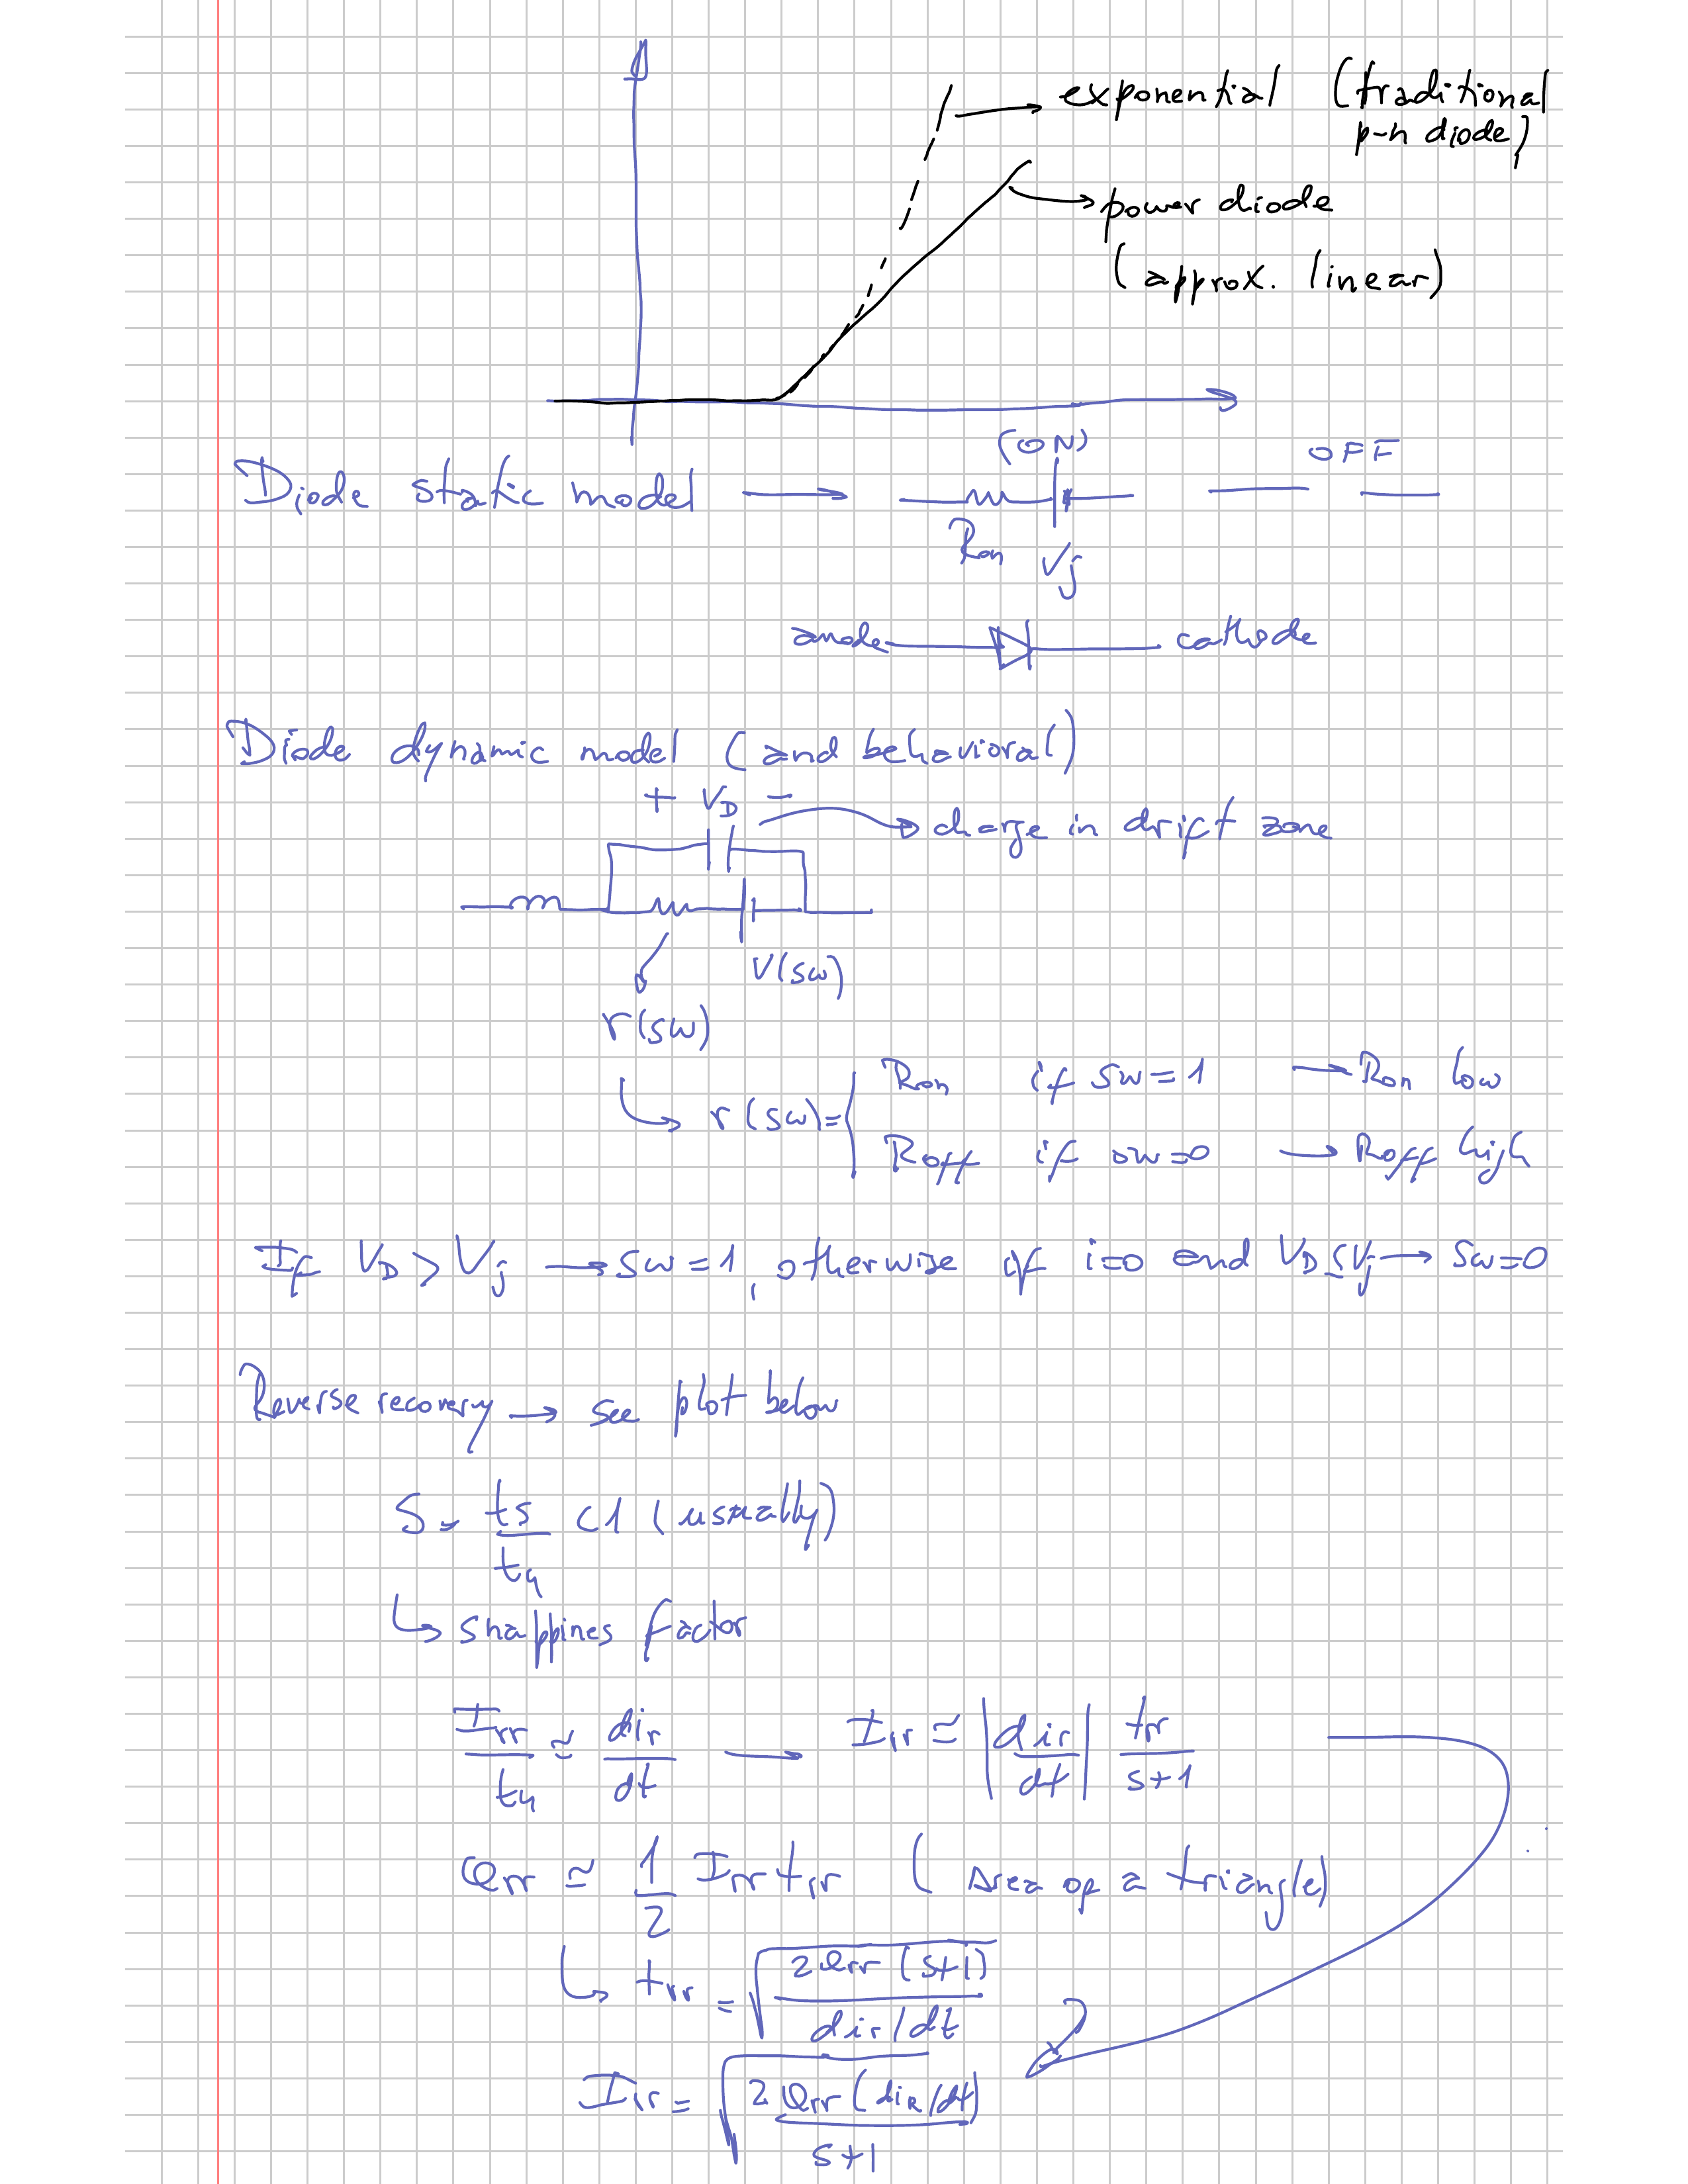 exponential (traditional
p-n diode)
power diode
(approx. linear)
(ON)
OFF
Diode static model →
Ron
Vj
anode
cathode
Diode dynamic model (and behavioral)
+ VD -
→ charge in drift zone
V(sw)
r(sw)
↳ r(sw)= { Ron if sw=1 → Ron low
Roff if sw=0 → Roff high
If VD > Vj → sw=1, otherwise if i=0 and VD ≤ Vj → sw=0
Reverse recovery → see plot below
S = ts/t4 <1 (usually)
↳ snappines factor
Irr/t4 ≅ dir/dt → Irr ≅ |dir/dt| trr/s+1
Qrr ≅ 1/2 Irr trr (Area of a triangle)
↳ trr = √(2Qrr(s+1)/dir/dt)
Irr = √(2Qrr(diR/dt)/s+1)